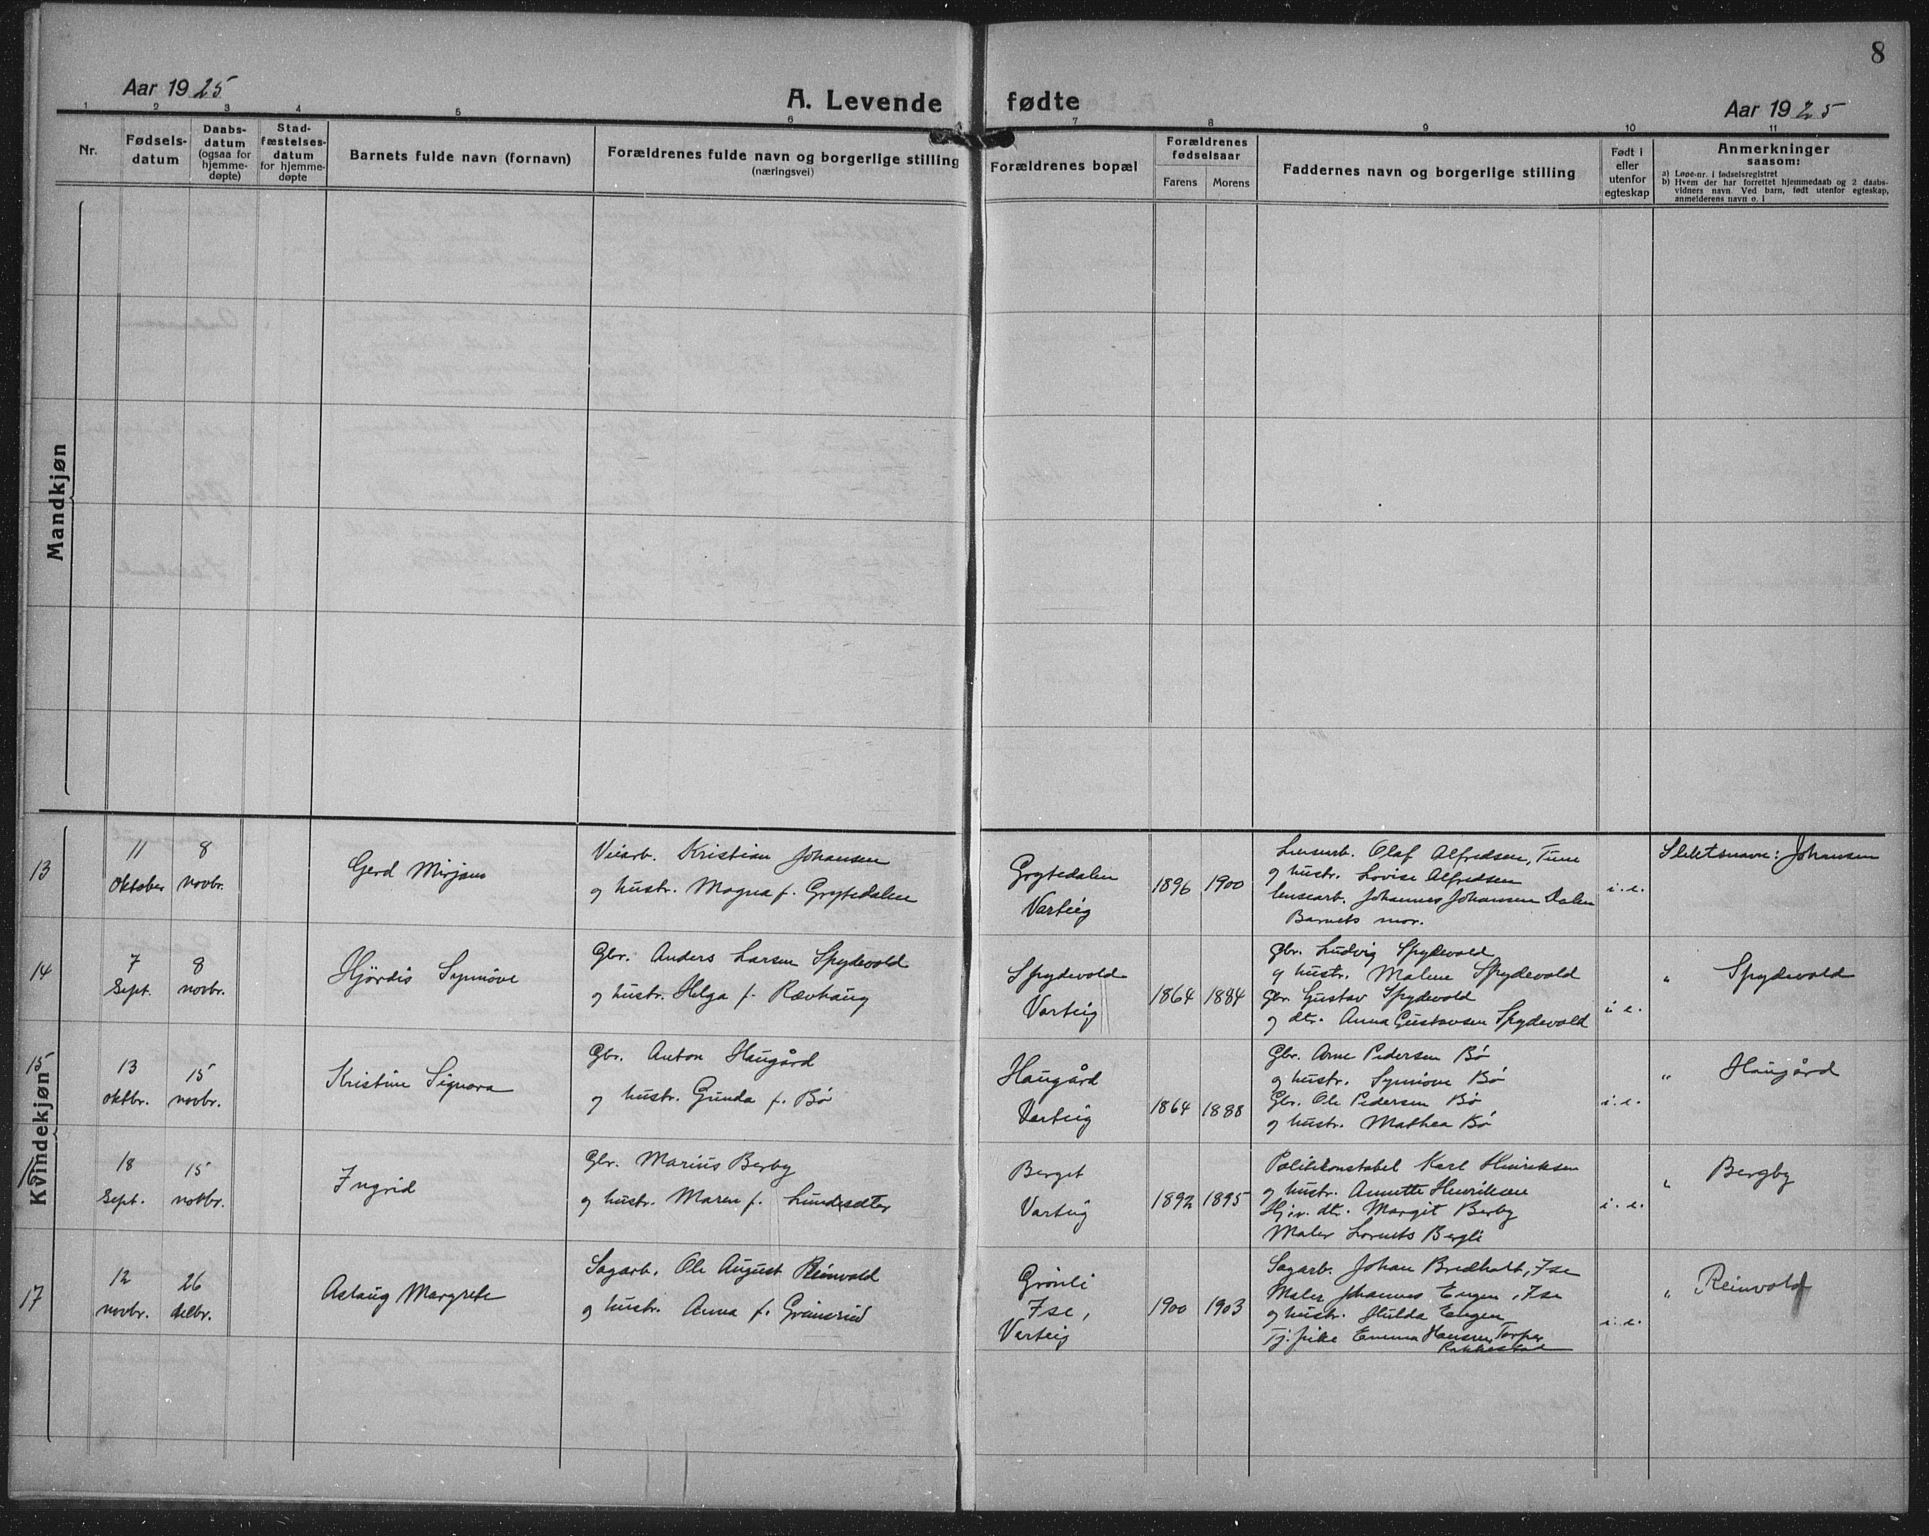 8
Aar 1925
A. Levende fødte
Aar 1925
1 2 3 4 5 6 7 8 9 10 11
Nr.
Fødsels-
datum
Daabs-
datum
(ogsaa for
hjemme-
døpte)
Stad-
fæstelses-
datum
for hjemme-
døpte
Barnets fulde navn (fornavn)
Forældrenes fulde navn og borgerlige stilling
(næringsvei)
Forældrenes bopæl
Forældrenes
fødselsaar
Farens Morens
Faddernes navn og borgerlige stilling
Født i
eller
utenfor
egteskap
Anmerkninger
saasom:
a) Løpe-nr. i fødselsregistret
b) Hvem der har forrettet hjemmedaab og 2 daabs-
vidners navn. Ved barn, født utenfor egteskap,
anmelderens navn o. l
Mandkjøn
Kvindekjøn
13
11
oktober
8
novbr.
Gerd Mirjam
Veiarb. Kristian Johansen
og hustr. Magna f. Grytedalen
Grytedalen
Varteig
1896 1900
Olaf Alfredsen, Tune
og hustr. Lovise Alfredsen
Johannes Johansen Dalen
Barnets mor.
i. e.
Slektsnavn: Johansen
14
7
Sept.
8
novbr.
Hjørdis Synnøve
Gbr. Anders Larsen Spydevold
og hustr. Helga f. Rævhaug
Spydevold
Varteig
1864 1884
Gbr. Ludvig Spydevold
og hustr. Malene Spydevold
Gbr. Gustav Spydevold
og dtr. Anna Gustavsen Spydevold
i e.
" Spydevold
15
13
oktbr.
15
novbr.
Kristine Signora
Gbr. Anton Haugård
og hustr. Gunda f. Bø
Haugård
Varteig
1864 1888
Gbr. Arne Pedersen Bø
og hustr. Synnøve Bø
Gbr. Ole Pedersen Bø
og hustr. Mathea Bø
i. e.
" Haugård
16
18
Sept.
15
novbr.
Ingrid
Gbr. Marius Berby
og hustr. Maren f. Lundesæter
Berget
Varteig
1892 1895
Politikonstabel Karl Henriksen
og hustr. Annette Henriksen
Hjv. dtr. Margit Berby
Maler Bergli
i. e.
" Bergby
17
12
novbr.
26
desbr.
Aslaug Margrete
Sagarb. Ole August Reinvold
og hustr. Anna f. Grønsrud
Grønli
Ise,
Varteig
1900 1903
Sagarb. Johan Bredholt, Ise
Maler Johannes Engen, Ise
og hustr. Hulda Engen
Tj. pike Emma Hansen, Torper
Rakkestad
i. e.
" Reinvold